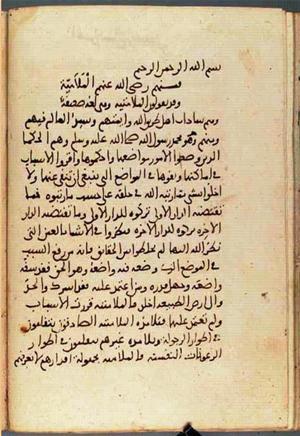 بسم الله الرحمن الرحيم
ومنهم رضي الله عنهم الملامتية
وقد يقولون الملامية وهي لغة ضعيفة
وهم سادات اهل طريق الله وايمتهم وسيد العالم فيهم
ومنهم وهو محمد رسول الله صلى الله عليه وسلم وهم الحكما
الذين وضعوا الامور مواضعها واحكموها واقروا الاسباب
في اماكنها ونفوها في المواضع التي ينبغي ان تنفى عنها ولا
اخلوا بشي مما رتبه الله في خلقه على حسب ما رتبوه فما
تقتضيه الدار الاولى تركوه للدار الاولى وما تقتضيه الدار
الاخرة تركوه للدار الاخرة فنظروا في الاشيا بالعين التي
نظر الله اليها لم يخلطوا بين الحقايق فانه من رفع السبب
في الموضع الذي وضعه فيه واضعه وهو الحق فقد سفه
واضعه وجهل قدره ومن اعتمد عليه فقد اشرك والحد
والى ارض الطبيعة اخلد فالملامتية قررت الاسباب
ولم تعتمد عليها فتلامذة الملامتية الصادقون يتقلبون
في اطوار الرجولة وتلامذة غيرهم يتقلبون في اطوار
الرعونات النفسية فالملامية مجهولة اقدارهم لا يعرفهم